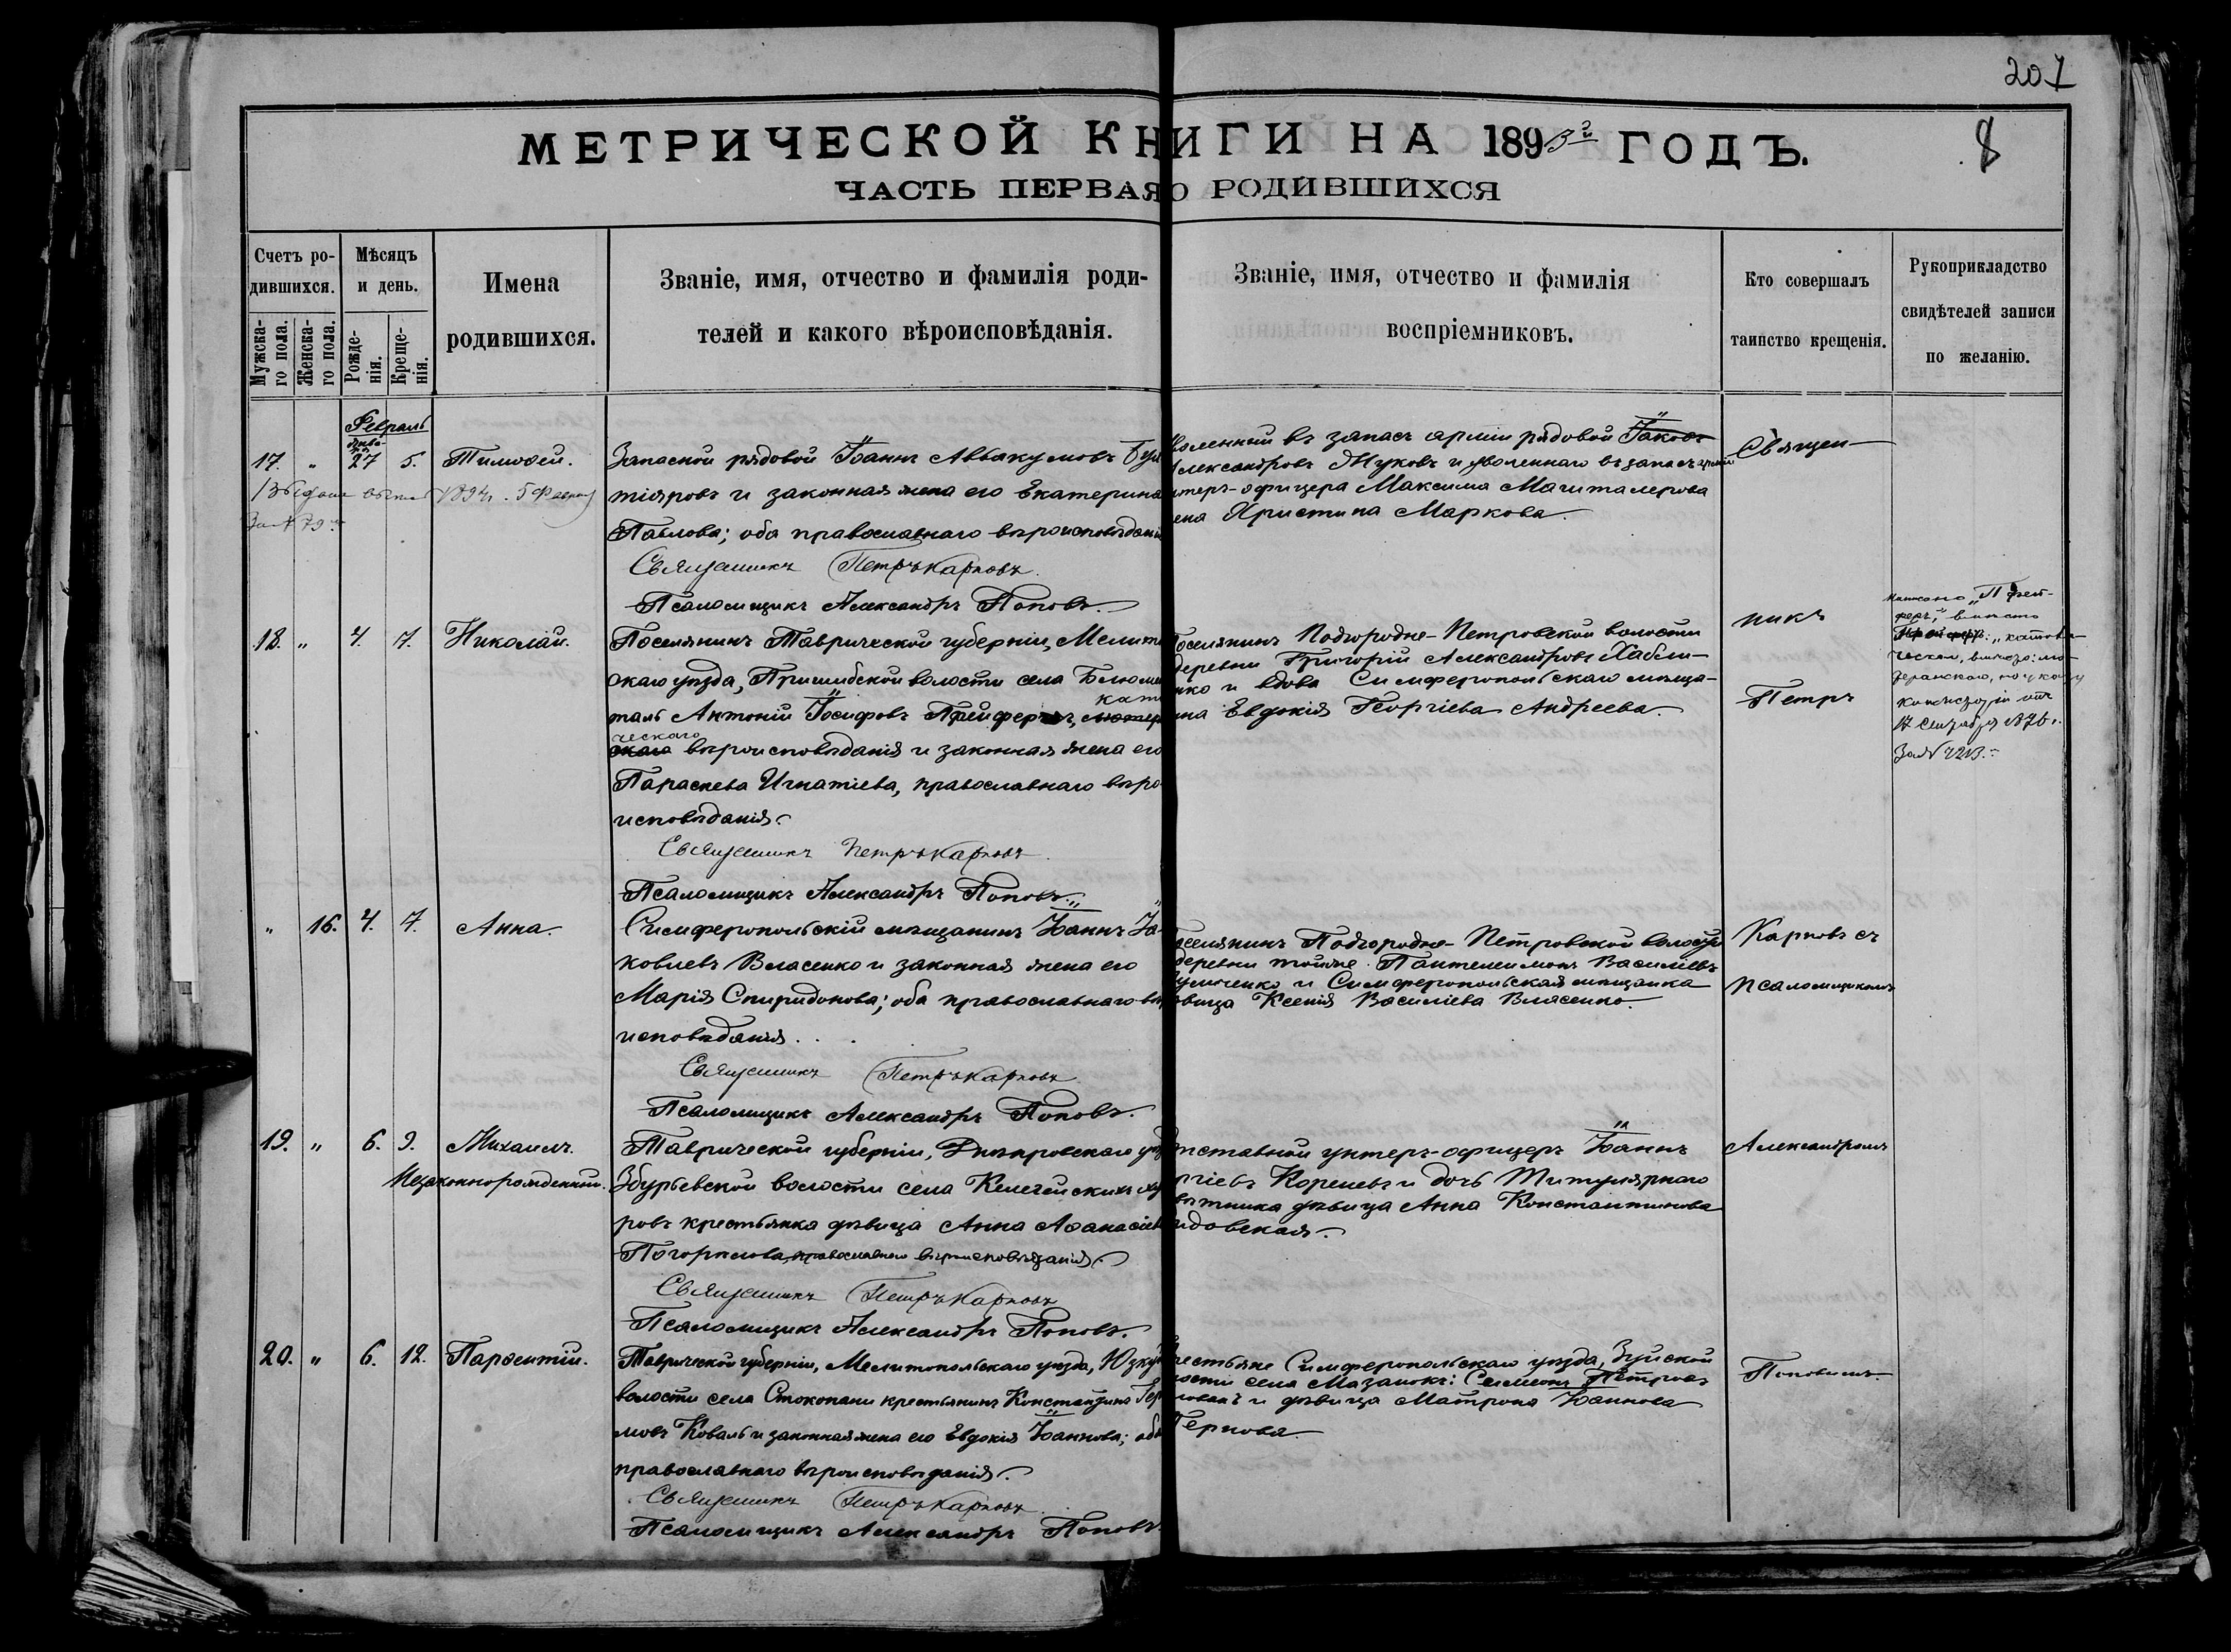 207
МЕТРИЧЕСКОЙ КНИГИ НА 1893й ГОДЪ.
8
ЧАСТЬ ПЕРВАЯ О РОДИВШИХСЯ
Счетъ ро-
дившихся.
Мужска-
го пола.
Женска-
го пола.
Мѣсяцъ
и день.
Рожде-
нія.
Креще-
нія.
Имена
родившихся.
Званіе, имя, отчество и фамилія роди-
телей и какого вѣроисповѣданія.
Званіе, имя, отчество и фамилія
воспріемниковъ.
Кто совершалъ
таинство крещенія.
Рукоприкладство
свидѣтелей записи
по желанію.
Февраль
17. " 27 5. Тимоѳей.
1894г. 5 Февраля
За № 79
Запасной рядовой Іоаннъ Аввакумовъ
и законная жена его Екатерина
Павлова; оба православнаго вѣроисповѣданія
Священникъ Петръ Карповъ.
Псаломщикъ Александръ Поповъ.
воленный въ запасъ арміи рядовой Іаковъ
Александровъ Жуковъ и уволеннаго въ запасъ арміи
унтеръ-офицера Максима
жена Христина Маркова.
Священ-
18. " 4. 7. Николай.
Поселянинъ Таврической губерніи, Мелито
скаго уѣзда, Пришибской волости села Блюмен
таль Антоній Іосифовъ Прейферъ, като
ческаго
вѣроисповѣданія и законная жена его
Параскева Игнатіева, православнаго вѣро
исповѣданія.
Священникъ Петръ Карповъ.
Псаломщикъ Александръ Поповъ.
Поселянинъ Подгородне-Петровской волости
деревни Григорій Александровъ Хабли-
нко и вдова Симферопольскаго мѣща-
нина Евдокія Георгіева Андреева.
никъ
Петръ
17 Сентября 1876г.
" 16. 4. 7. Анна.
Симферопольскій мѣщанинъ Іоаннъ Іа-
ковлевъ Власенко и законная жена его
Марія Спиридонова; оба православнаго вѣ
исповѣданія.
Священникъ Петръ Карповъ
Псаломщикъ Александръ Поповъ.
Поселянинъ Подгородне-Петровской волости
деревни тойже Пантелеимонъ Василіевъ
и Симферопольская мѣщанка
дѣвица Ксенія Василіева Власенко.
Карповъ съ
псаломщикомъ
19. " 6. 9. Михаилъ.
Незаконнорожденный.
Таврической губерніи, Днѣпровскаго уѣз
Збурьевской волости села Келегейскихъ ху
ровъ крестьянка дѣвица Анна Аѳанасіев
Погорилова, православнаго вѣроисповѣданія.
Священникъ Петръ Карповъ
Псаломщикъ Александръ Поповъ.
Отставной унтеръ-офицеръ Іоаннъ
ргіевъ Кореневъ и дочь Титулярнаго
Совѣтника дѣвица Анна Константинова
идовская.
Александромъ
20. " 6. 12. Парѳентій.
Таврической губерніи, Мелитопольскаго уѣзда, Юзку
волости села Стокопани крестьянинъ Константинъ Гер
мовъ Коваль и законная жена его Евдокія Іоаннова; оба
православнаго вѣроисповѣданія.
Священникъ Петръ Карповъ
Псаломщикъ Александръ Поповъ.
Крестьяне Симферопольскаго уѣзда, Зуйской
лости села Мазанокъ: Симеонъ Петровъ
и дѣвица Матрона Іоаннова
Тернова.
Поповымъ